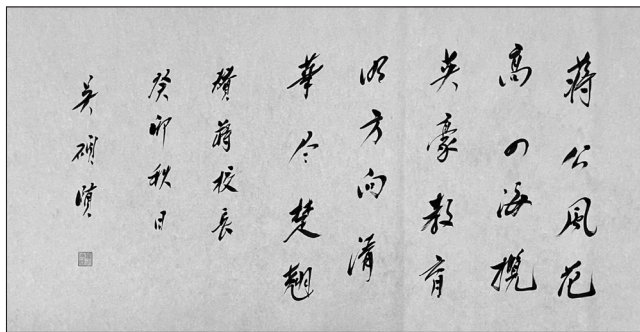 蒋公風范
高四海揽
英豪教育
明方向清
華尽楚翘
赞蒋校長
癸卯秋日
吴碩賢